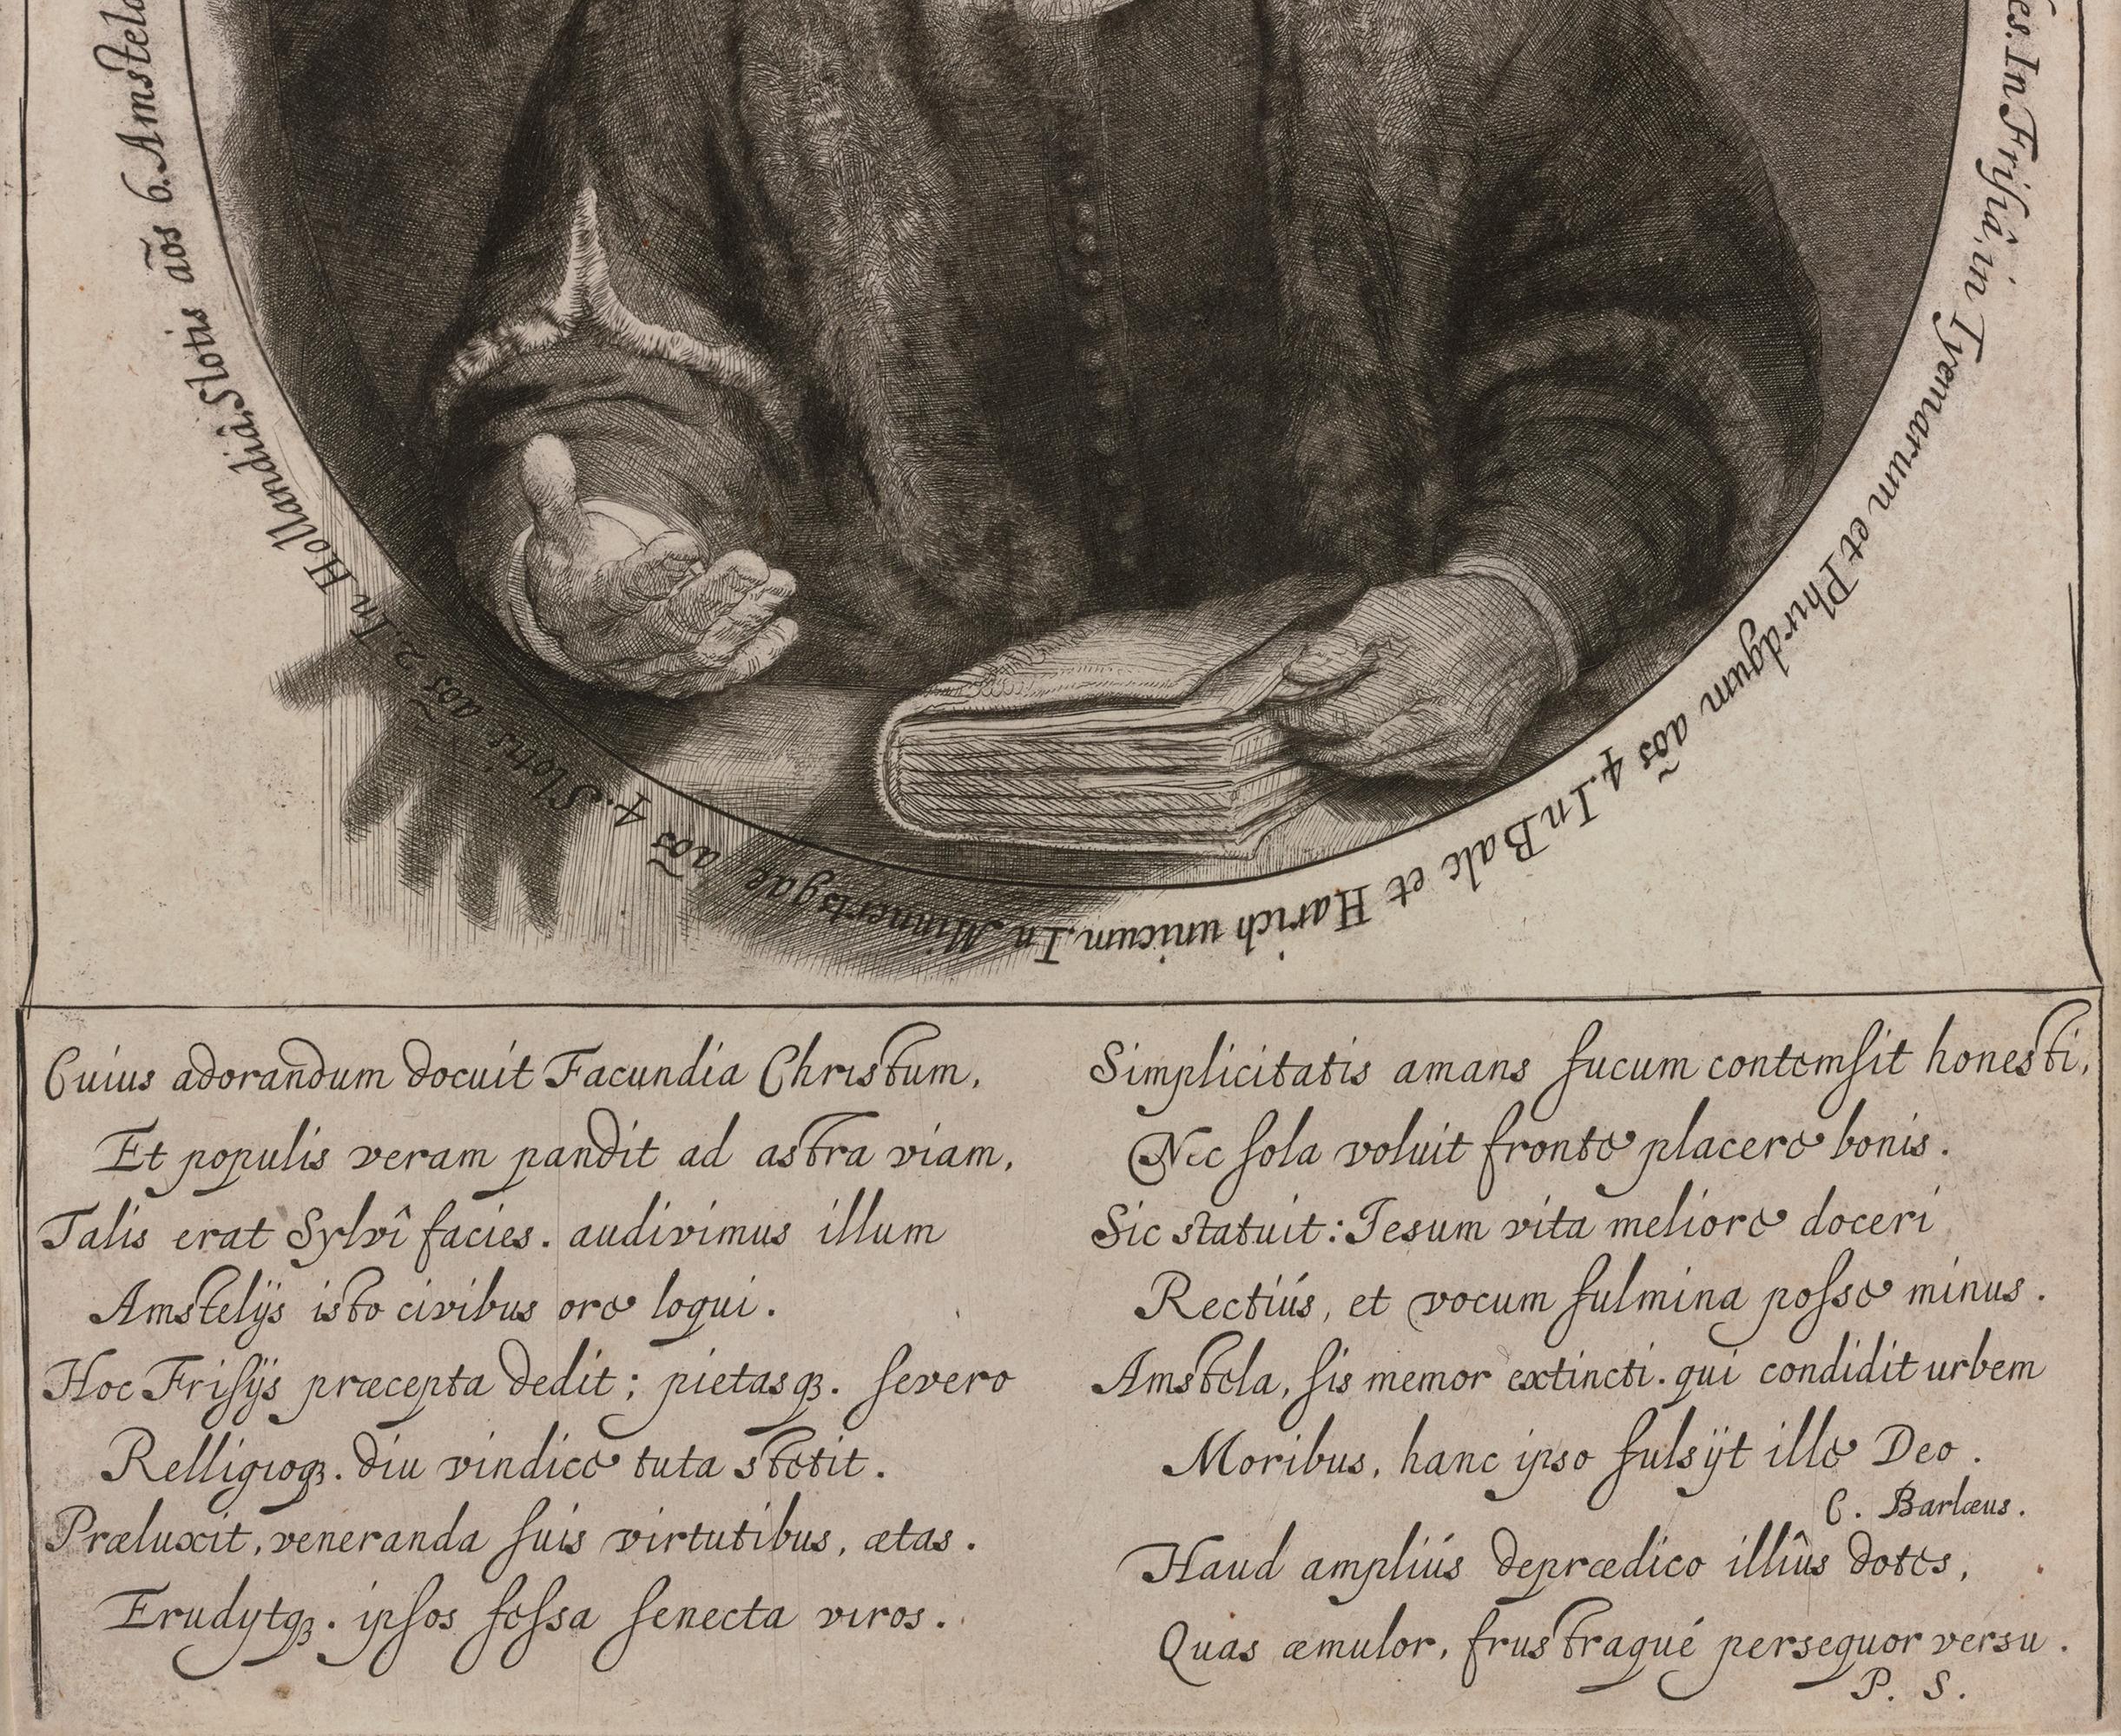 es. In Frisiâ, in Tyemarum et Phirdgum aõs 4. In Balc et Harich unicum. In Minnertsgae aõs 4. Slotis aõs 2. In Hollandiâ, Slotis aõs 6. Amstela
Cuius adorandum docuit Facundia Christum,
Et populis veram pandit ad astra viam,
Talis erat Sylvî facies. audivimus illum
Amstelijs isto civibus ore loqui.
Hoc Frisijs præcepta dedit; pietasq3. severo
Relligioq3. diu vindice tuta stetit.
Præluxit, veneranda suis virtutibus, ætas.
Erudytq3. ipsos fessa senecta viros.
Simplicitatis amans fucum contemsit honesti,
Nec sola voluit fronte placere bonis.
Sic statuit: Iesum vita meliore doceri
Rectiús, et vocum fulmina posse minus.
Amstela, sis memor extincti. qui condidit urbem
Moribus, hanc ipso fulsijt ille Deo.
C. Barlæus.
Haud ampliús deprædico illîus dotes,
Quas æmulor, frustraqué persequor versu.
P. S.